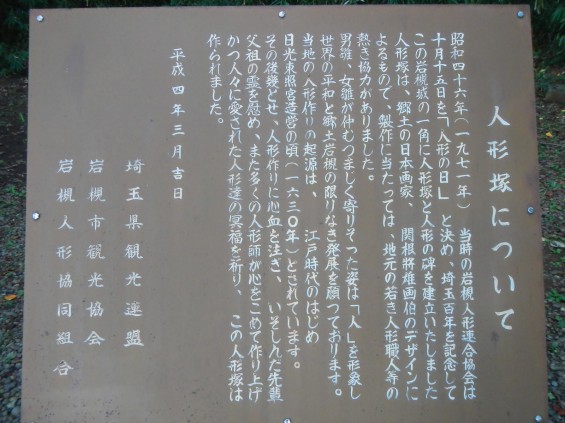 人形塚について
昭和四十六年(一九七一年) 当時の岩槻人形連合協会は
十月十五日を「人形の日」と決め、埼玉百年を記念して
この岩槻城の一角に人形塚と人形の碑を建立いたしました
人形塚は、郷土の日本画家、関根將雄画伯のデザインに
よるもので、製作に当たっては、地元の若き人形職人等の
熱き協力がありました。
男雛、女雛が仲むつましく寄りそった姿は「人」を形象し
世界の平和と郷土岩槻の限りなき発展を願っております。
当地の人形作りの起源は、江戸時代のはじめ
日光東照宮造営の頃(一六三〇年)とされています。
その後幾とせ、人形作りに心血を注ぎ、いそしんだ先輩
父祖の霊を慰め、また多くの人形師が心をこめて作り上げ
かつ人々に愛された人形達の冥福を祈り、この人形塚は
作られました。
平成四年三月吉日
埼玉県観光連盟
岩槻市観光協会
岩槻人形協同組合